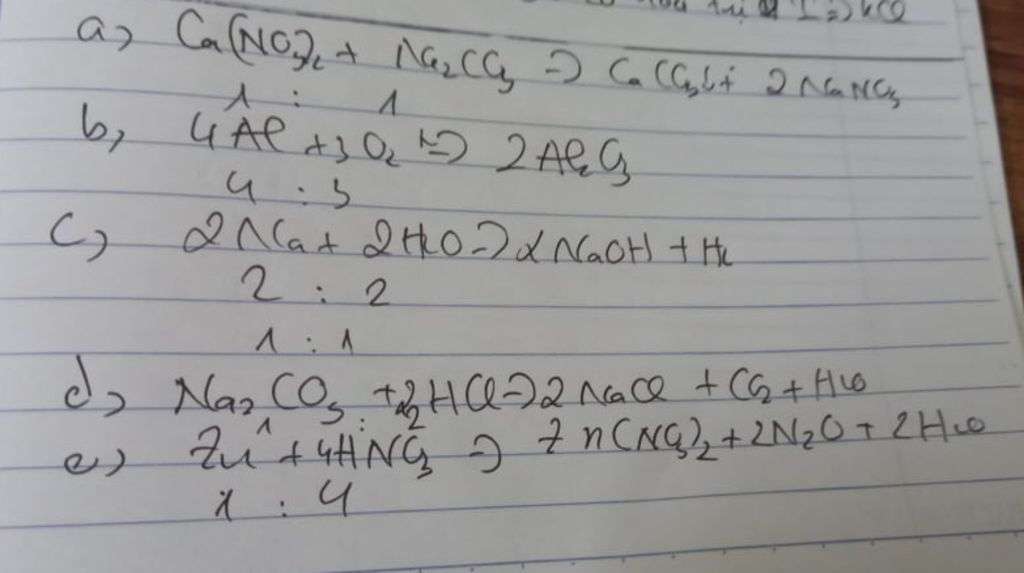 a) Ca(NO3)2 + Na2CO3 => CaCO3↓ + 2NaNO3
1 : 1
b) 4Al + 3O2 => 2Al2O3
4 : 3
c) 2Na + 2H2O -> 2NaOH + H2
2 : 2
1 : 1
d) Na2CO3 + 2HCl => 2NaCl + CO2 + H2O
1 : 2
e) Zn + 4HNO3 => Zn(NO3)2 + 2N2O + 2H2O
1 : 4